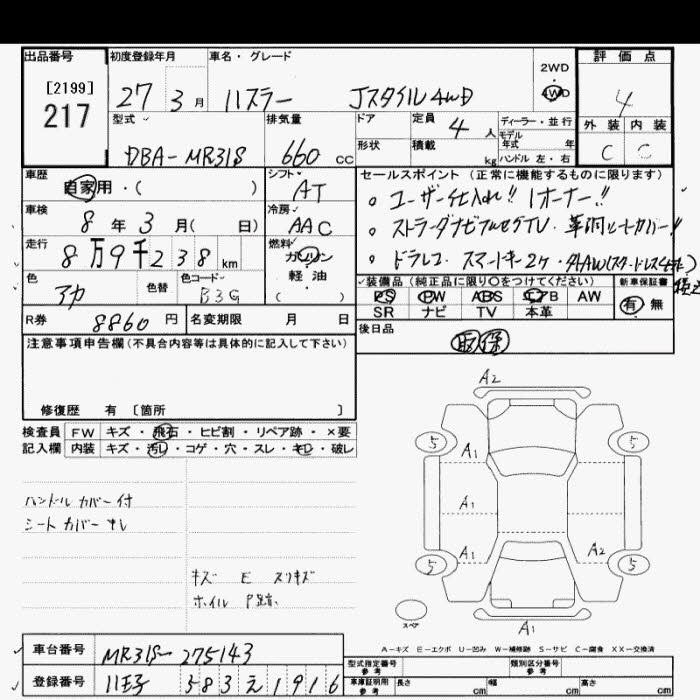 出品番号 初度登録年月 車名・グレード 評価点
[2199]
217
27 3月 ハスラー Jスタイル4WD 2WD 4WD 4
型式 排気量 ドア 定員 4人 ディーラー・並行 外装 内装
モデル年式 年
DBA-MR31S 660cc 形状 積載 kg ハンドル 左・右 C C
車歴 シフト セールスポイント(正常に機能するものに限ります)
自家用・( ) AT
。ユーザー仕入れ!! 1オーナー!!
車検 冷房
8年3月( 日) AAC
。ストラーダナビフルセグTV・革調シートカバー!!
走行 燃料
8万9千238km ガソリン
軽油
( )
。ドラレコ スマートキー2ヶ・
色 色替 色コード 装備品(純正品に限り○をつけてください) 新車保証書
アカ B3G PS PW ABS エアB AW 有 無
SR ナビ TV 本革
R券 8860円 名変期限 月 日 後日品
注意事項申告欄(不具合内容等は具体的に記入して下さい) 取 保
修復歴 有 〔箇所 〕
検査員 FW キズ・飛石・ヒビ割・リペア跡・×要
記入欄 内装 キズ・汚レ・コゲ・穴・スレ・キレ・破レ
A2
5 5
A1
ハンドルカバー付 A1
シートカバー
A1 A2
5 5
キズ E スリキズ
ホイル P跡
スペア
A1
A-キズ E-エクボ U-凹み W-補修跡 S-サビ C-腐食 XX-交換済
車台番号 MR31S-275143
型式指定番号 参考 類別区分番号 参考
登録番号 八王子 583 え 1916
車庫証明用 参考 長さ cm 幅 cm 高さ cm